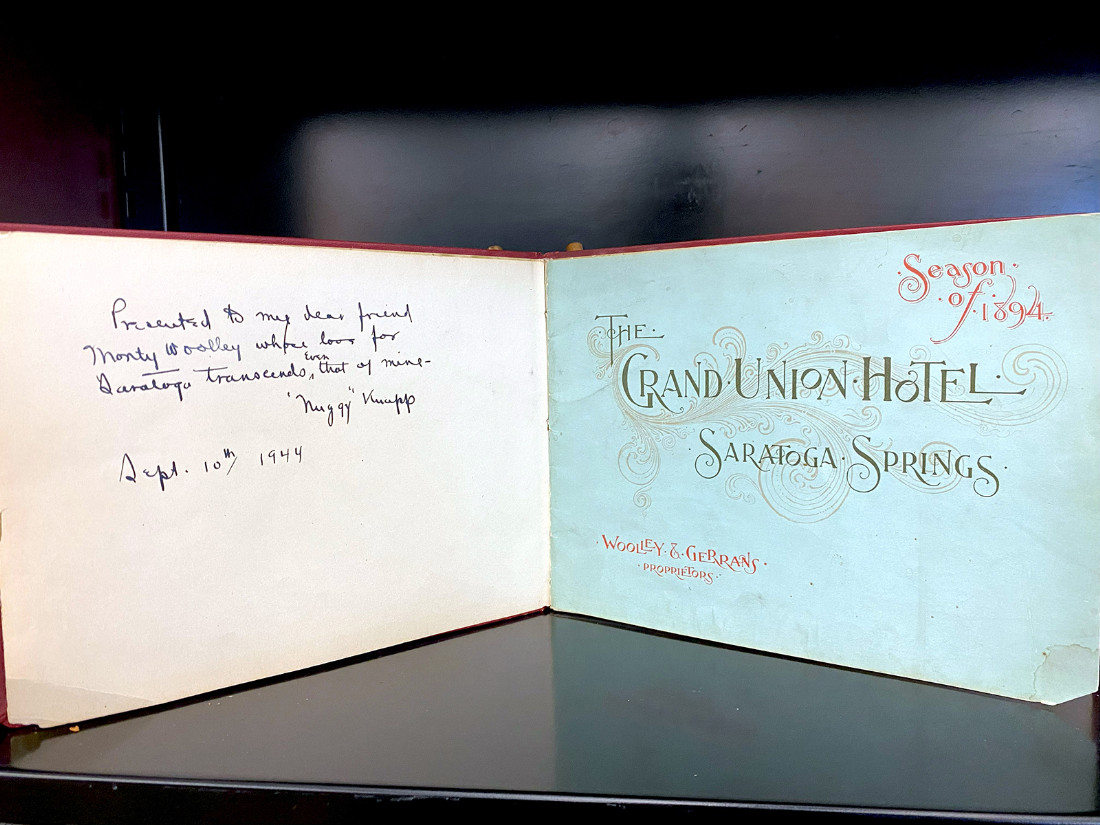 Presented to my dear friend
Monty Woolley whose love for
Saratoga transcends, even that of mine-
"Nuggy" Knapp
Sept. 10th 1944
Season
of 1894.
The
Grand Union Hotel
Saratoga Springs
Woolley & Gerrans
Proprietors